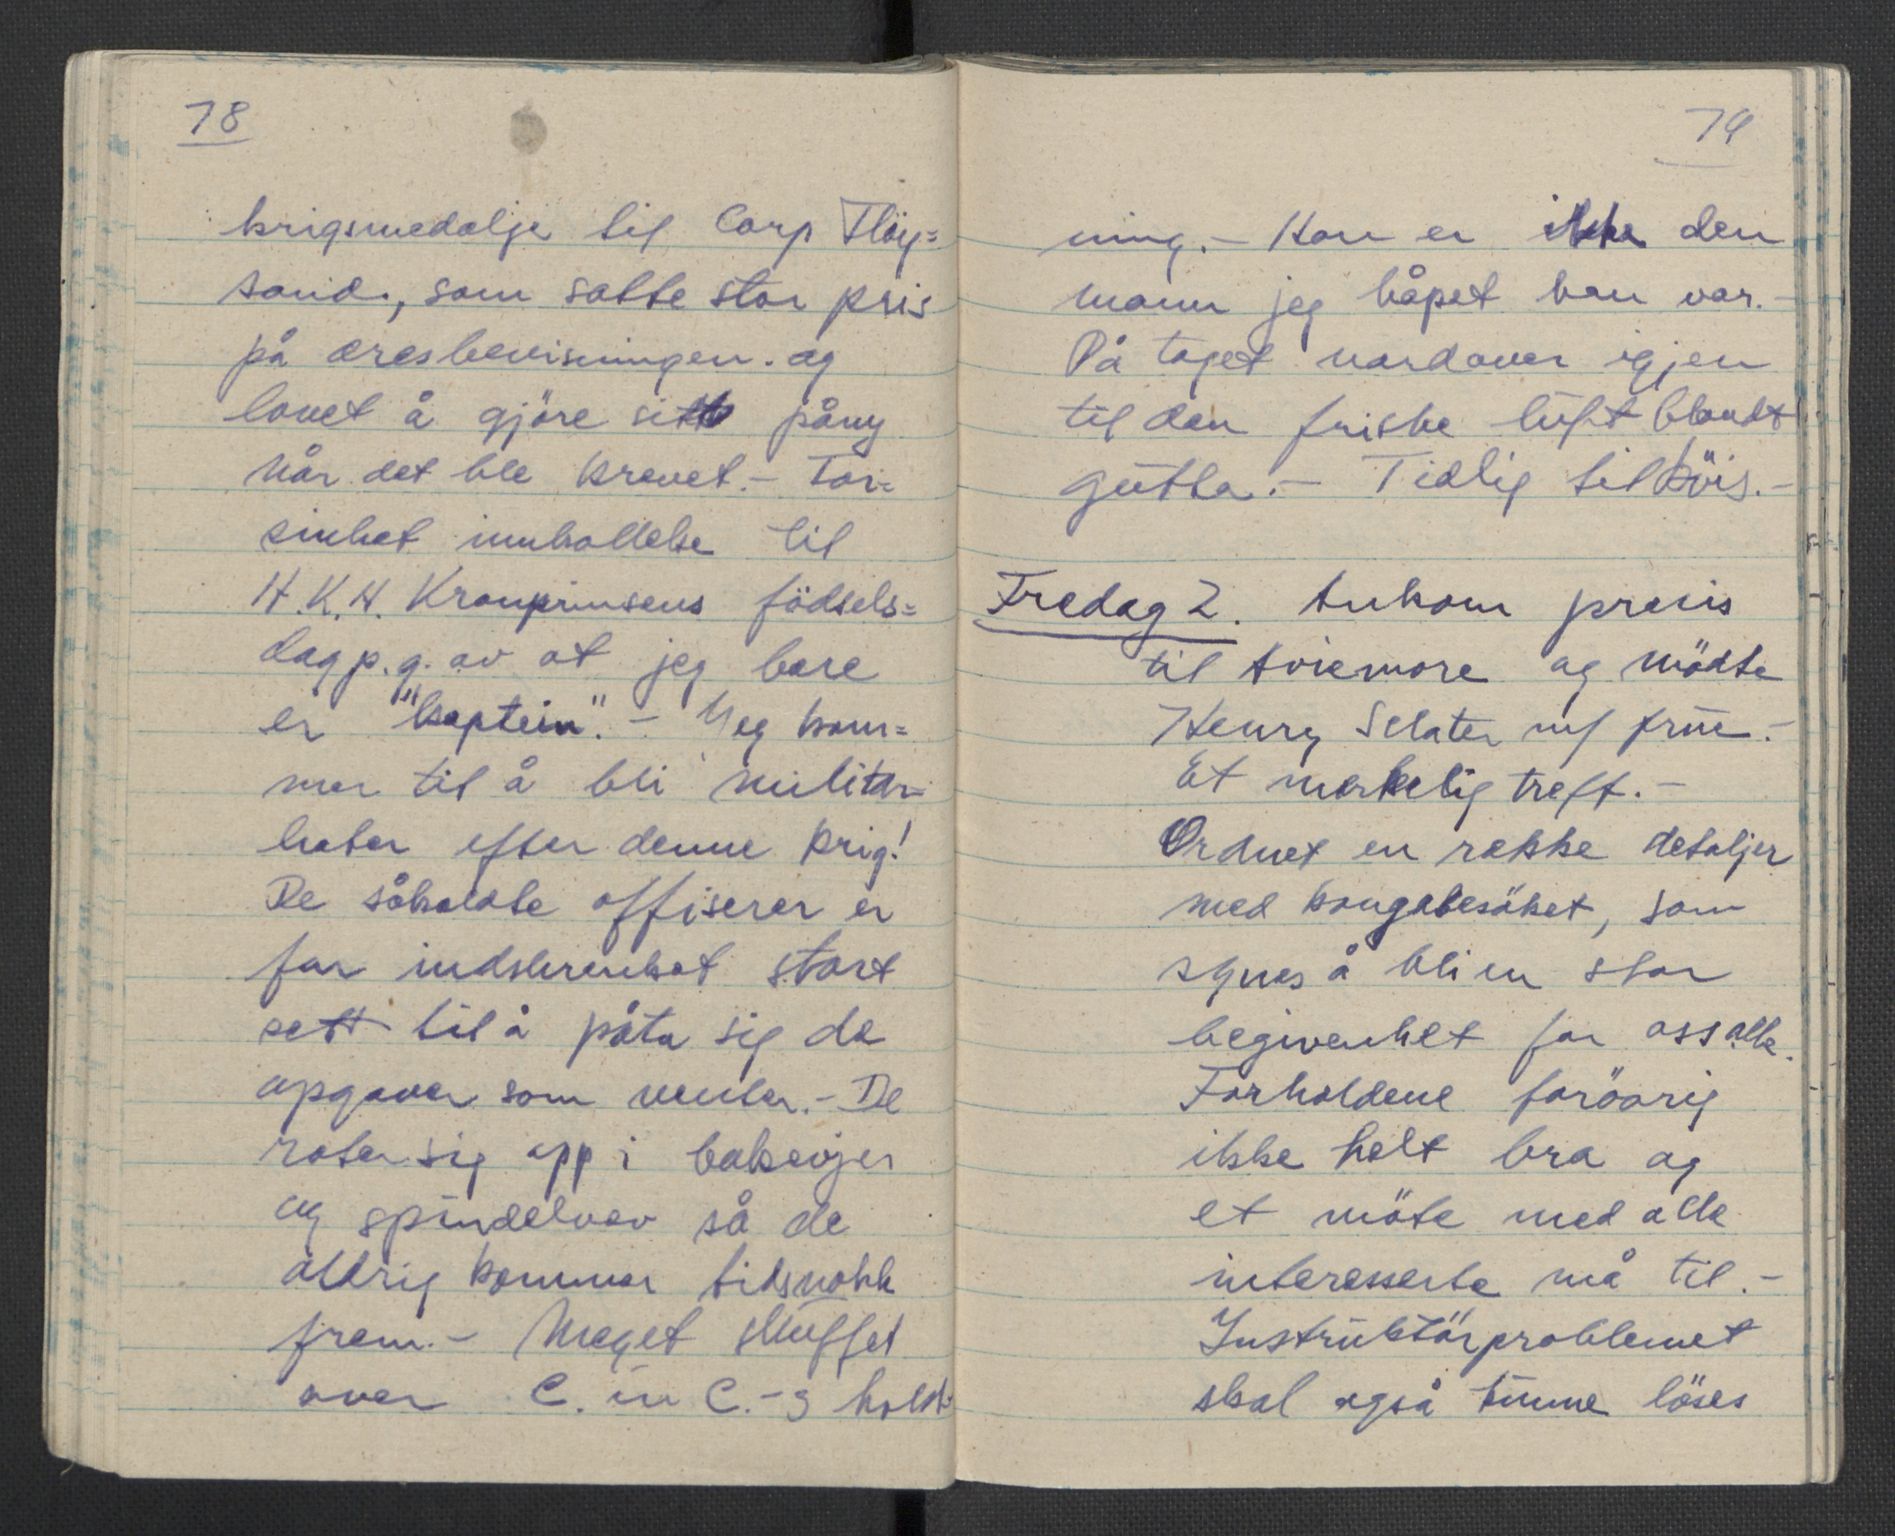 78
krigsmedalje til Corp Flöy=
sand., som satte stor pris
på æresbevisningen. og
lovet å gjöre sitt påny
når det ble krevet. - For=
sinket innkallelse til
H.K.H. Kronprinsens födsels=
dag p.g. av at jeg bare
er "Kaptein". - Jeg kom=
mer til å bli militær-
hater efter denne krig!
De såkaldte offiserer er
for indskrenket stort
sett til å påta sig de
opgaver som venter. - De
roter sig opp i bakevjer
og spindelvev så de
aldrig kommer tidsnokk
frem. - Meget skuffet
over C. in C.-s hold-
79
ning. - Han er ikke den
mann jeg håpet han var. -
På toget nordover igjen
til den friske luft blandt
gutta. - Tidlig til köis. -
Fredag 2. Ankom presis
til Aviemore og mödte
Henry Sclater m/ frue. -
Et merkelig treff. -
Ordnet en rekke detaljer
med kongebesöket, som
synes å bli en stor
begivenhet for oss alle.
Forholdene forövrig
ikke helt bra og
et möte med alle
interesserte må til. -
Instruktörproblemet
skal også kunne löses